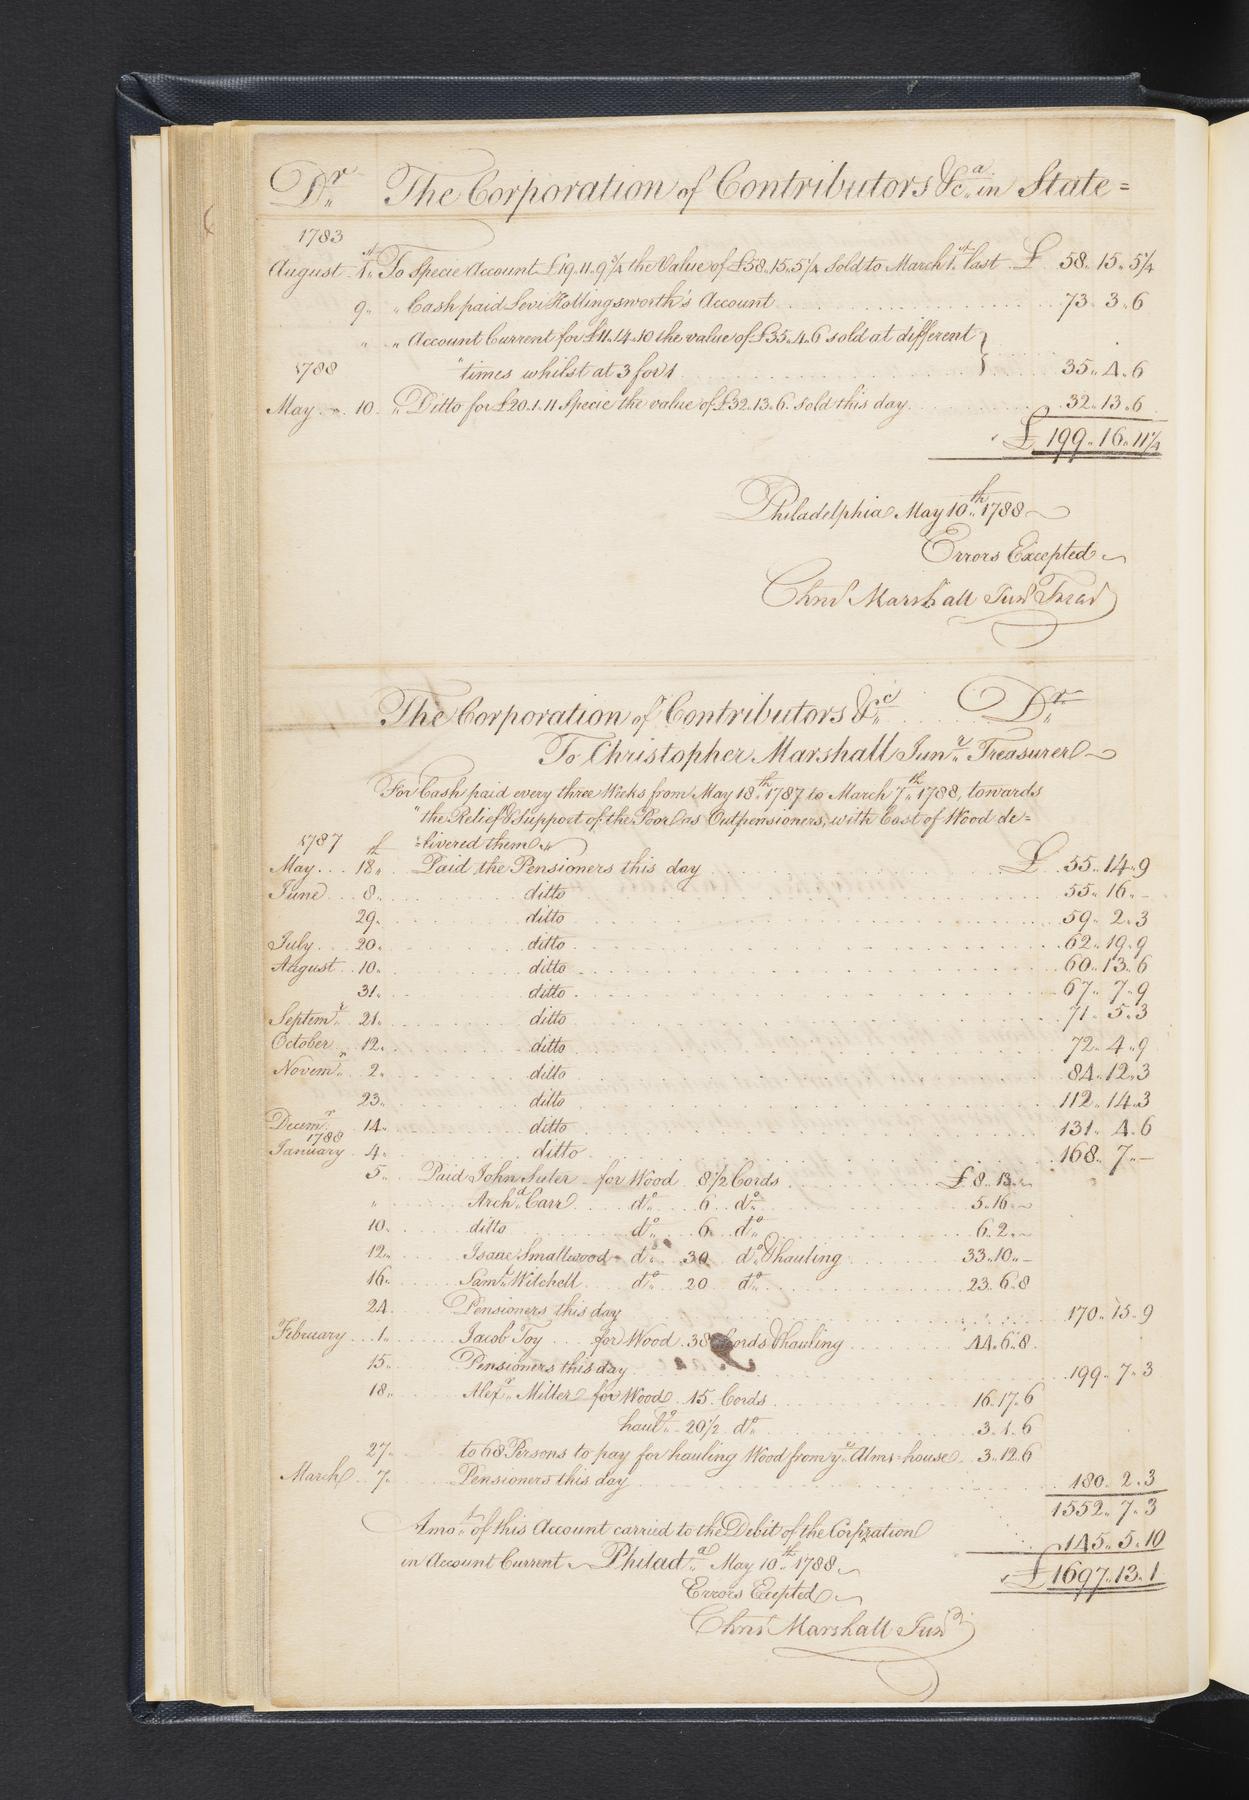 Dr. The Corporation of Contributors &c.a in State=
1783
August 1st. To Specie Account £19..11..9¾ the Value of £58..15..5¼ sold to March 1st. last £ 58..15..5¼
9.. " Cash paid Levi Hollingsworth's Account 73..3..6
" " Account Current for £11..14..10 the value of £35..4..6 sold at different
1788 "times whilst at 3 for 1 35..4..6
May 10. " Ditto for £20..1..11 Specie the value of £32..13..6. sold this day 32..13..6
£ 199..16..11¼
Philadelphia May 10th. 1788
Errors Excepted
Chrisr Marshall Junr Treasr
The Corporation of Contributors &c. Dr.
To Christopher Marshall Junr. Treasurer
For Cash paid every three Weeks from May 18th. 1787 to March 7th. 1788, towards
"the Relief & Support of the Poor as Outpensioners, with Cost of Wood de=
1787 =livered them
May 18th.. Paid the Pensioners this day £ 55..14..9
June 8.. ditto 55..16..–
29.. ditto 59..2..3
July 20.. ditto 62..19..9
August 10.. ditto 60..13..6
31.. ditto 67..7..9
Septemr. 21.. ditto 71..5..3
October 12.. ditto 72..4..9
Novemr. 2.. ditto 84..12..3
23.. ditto 112..14..3
Decemr. 14.. ditto 131..4..6
1788
January 4.. ditto 168..7..–
5.. Paid John Suter for Wood 8½ Cords £8..13..–
" Archd. Carr do. 6 do. 5..16..–
10.. ditto do. 6 do. 6..2..–
12.. Isaac Smallwood do. 30 do. & hauling 33..10..–
16.. Saml. Witchell do. 20 do. 23..6..8
24. Pensioners this day 170..15..9
February 1.. Jacob Toy for Wood 38 Cords & hauling 44..6..8
15.. Pensioners this day 199..7..3
18.. Alexr. Miller for Wood 15 Cords 16..17..6
haulg. 20½ do. 3..1..6
27.. to 68 Persons to pay for hauling Wood from ye. Alms=house 3..12..6
March 7.. Pensioners this day 180..2..3
1552..7..3
Amot. of this Account carried to the Debit of the Corporation 145..5..10
in Account Current Philada. May 10th. 1788 £1697..13..1
Errors Excepted
Chrisr Marshall Junr